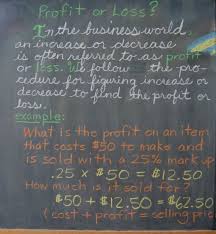 Profit or Loss?
In the business world,
an increase or decrease
is often referred to as profit
or loss. We follow the pro-
cedure for figuring increase or
decrease to find the profit or
loss.
example:
What is the profit on an item
that costs $50 to make and
is sold with a 25% mark up
.25 x $50 = $12.50
How much is it sold for?
$50 + $12.50 = $62.50
(cost + profit = selling price